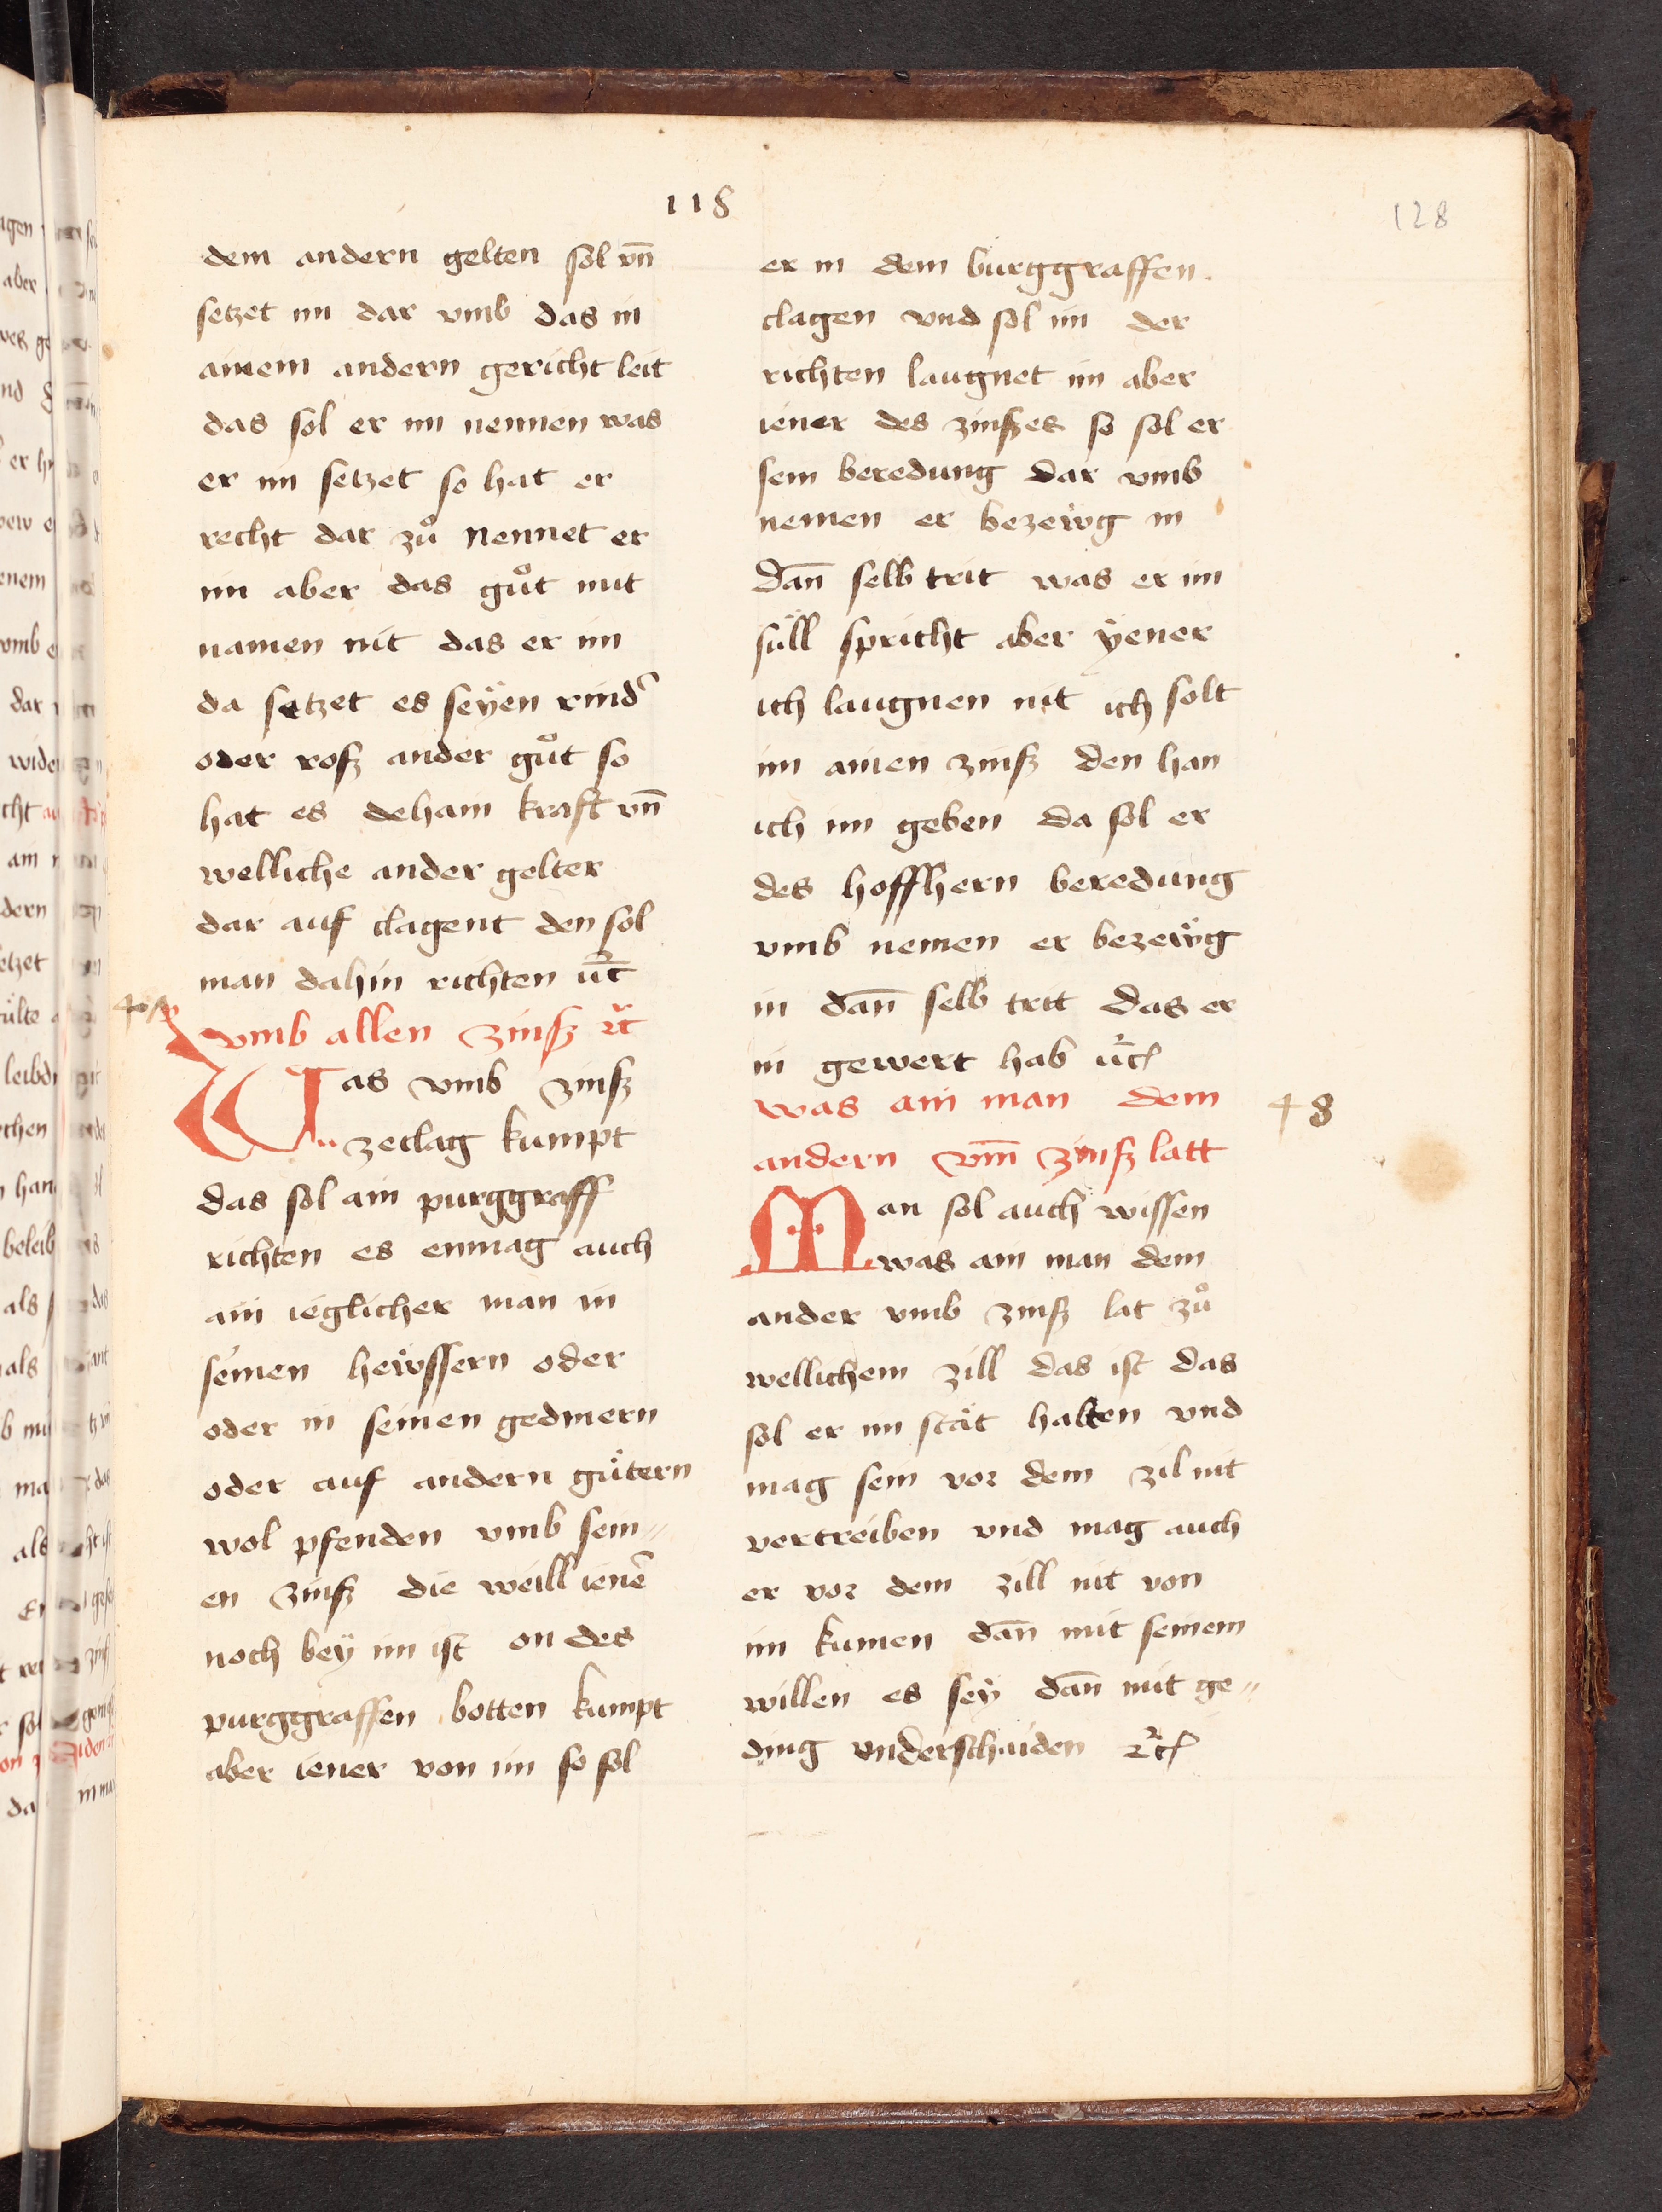 118
128
dem andern gelten sol vn̄
setzet im dar vmb das in
ainem andern gericht leit
das sol er im nennen was
er im setzet so hat er
recht dar zů nennet er
im aber das gůt mit
namen nit das er im
da setzet es seyen rind̾
oder rosz ander gůt so
hat es dehain kraft vn̄
welliche ander gelter
dar auf clagent den sol
man dahin richten ꝛc̄
vmb allen zinsz ꝛc̄
Was vmb zinsz
zeclag kumpt
das sol ain purggraff
richten es enmag auch
ain ieglicher man in
seinen hewssern oder
oder in seinen gedmern
oder auf andern gütern
wol pfenden vmb sein⸗
en zinsz die weill ienē
noch bey im ist on des
purggraffen botten kumpt
aber iener von im so sol
er in dem burggraffen
clagen vnd sol im der
richten laugnet im aber
iener des zinszes so sol er
sein beredung dar vmb
nemen er bezewg in
dañ selb trit was er im
süll spricht aber yener
ich laugnen nit ich solt
im ainen zinsz den han
ich im geben da sol er
des hoffhern beredung
vmb nemen er bezewg
in dañ selb trit das er
in gewert hab ꝛc̄
was ain man dem
andern vm̄ zinsz latt
48
Man sol auch wissen
was ain man dem
ander vmb zinsz lat zů
wellichem zill das ist das
sol er im stät halten vnd
mag sein vor dem zil nit
vertreiben vnd mag auch
er vor dem zill nit von
im kumen dañ mit seinem
willen es sey dañ mit ge⸗
ding vnderschaiden ꝛc̄